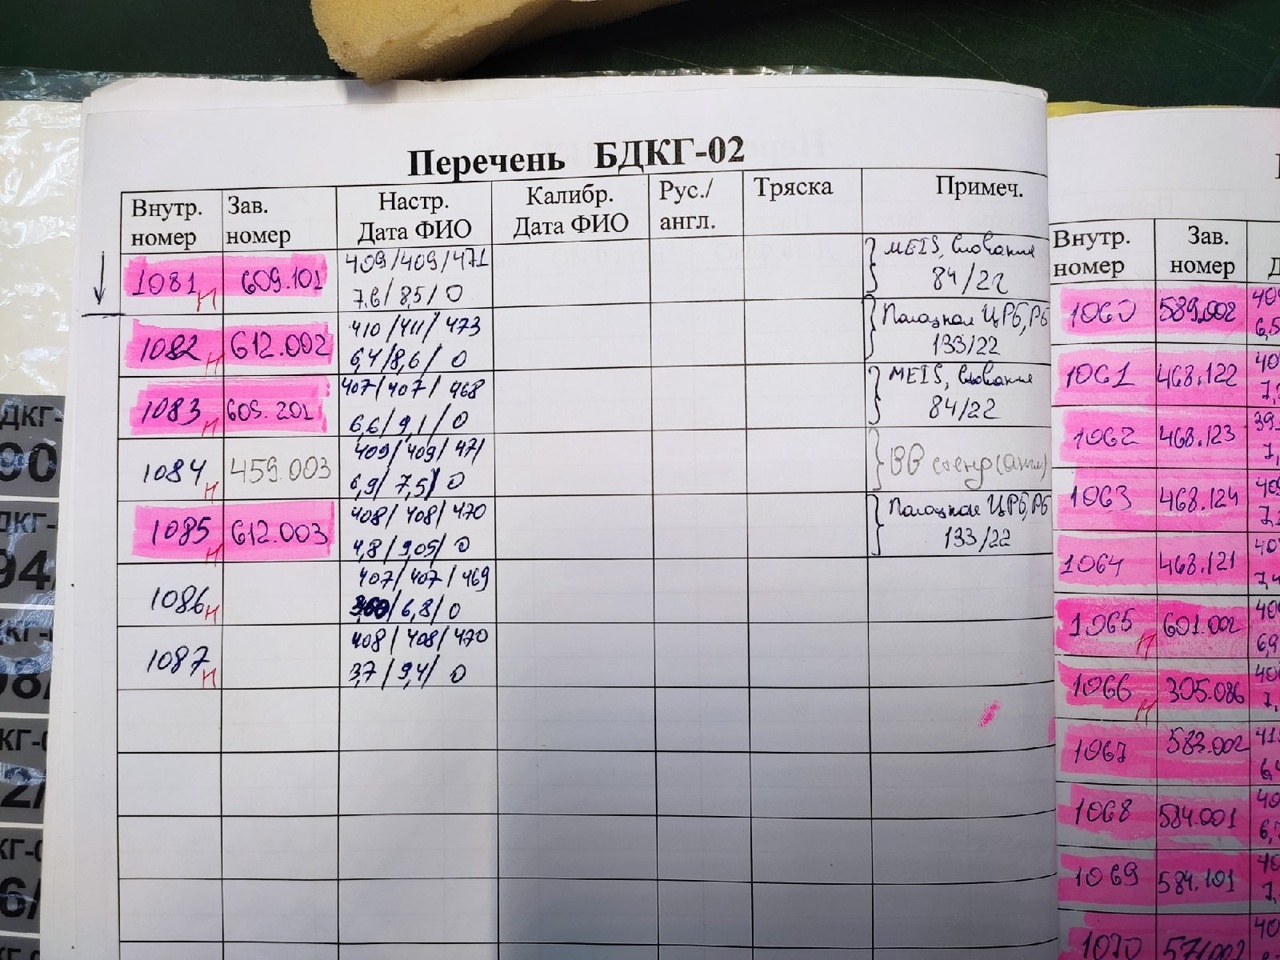 Перечень БДКГ-02
Внутр. номер Зав. номер Настр. Дата ФИО Калибр. Дата ФИО Рус./ англ. Тряска Примеч.
1081 н 609.101 409/409/471 MEIS, Словакия
7,6/8,5/0 84/22
1082 н 612.002 410/411/473 Полоцкая ЦРБ, РБ
6,4/8,6/0 133/22
1083 н 609.201 407/407/468 MEIS, Словакия
6,6/9,1/0 84/22
1084 н 459.003 409/409/471 ВВ стенд (англ)
6,9/7,5/0
1085 н 612.003 408/408/470 Полоцкая ЦРБ, РБ
4,8/9,05/0 133/22
1086 н 407/407/469
/6,8/0
1087 н 408/408/470
3,7/9,4/0
Внутр. номер Зав. номер
1060 589.002
1061 468.122
1062 468.123
1063 468.124
1064 468.121
1065 н 601.002
1066 н 305.086
1067 583.002
1068 584.001
1069 584.101
1070 571.002